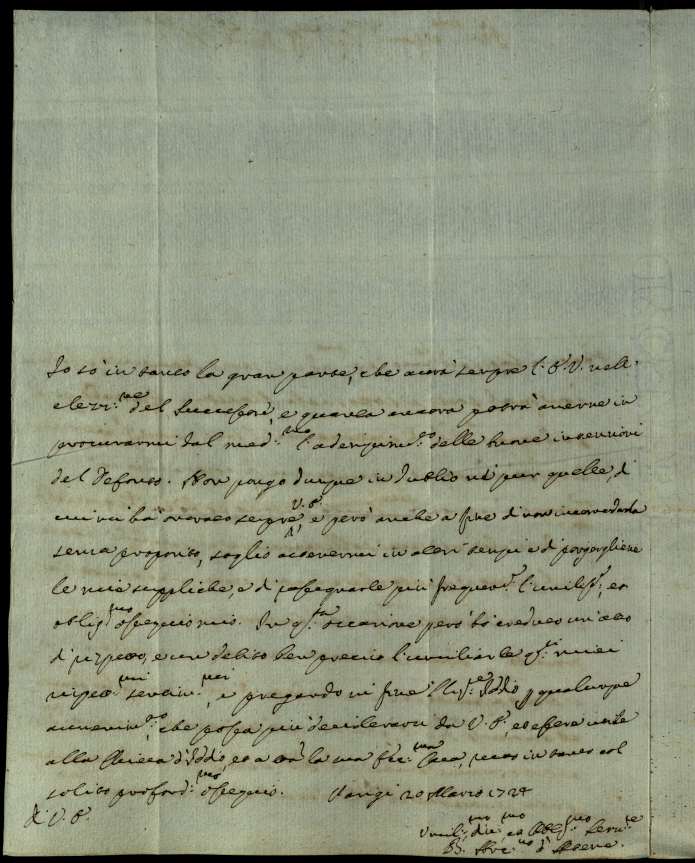 Io sò in tanto la gran parte, che avrà sempre l' E. V. nell'
elezz.ne del Successore, e quanta ancora potrà averne in
procurarmi dal med.mo l'adempim.to delle buone intenzioni
del Defonto. Non pongo dunque in dubbio nè pur quelle, di
cui mi hà onorato sempre V. E., e però anche a fine di non incomodarla
senza proposito, soglio astenermi in altri tempi e di porgergliene
le mie suppliche, e di rassegnarle più frequen.te l'umiliss.o, et
oblig.mo ossequio mio. In q.ta occasione però hò creduto un atto
di rispetto, e un debito ben preciso l'umiliarle q.ti miei
rispett.mi sentim.ti, e pregando in fine
avvenim.to, che possa più desiderarsi da V. E., et essere utile
alla Chiesa d'Iddio, et a tutta la sua Ecc.ma Casa, resto in tanto col
solito profond.mo ossequio. Parigi 20 Marzo 1724
di V. E.
Umil.mo dev.mo et Obblig.mo Serv.re